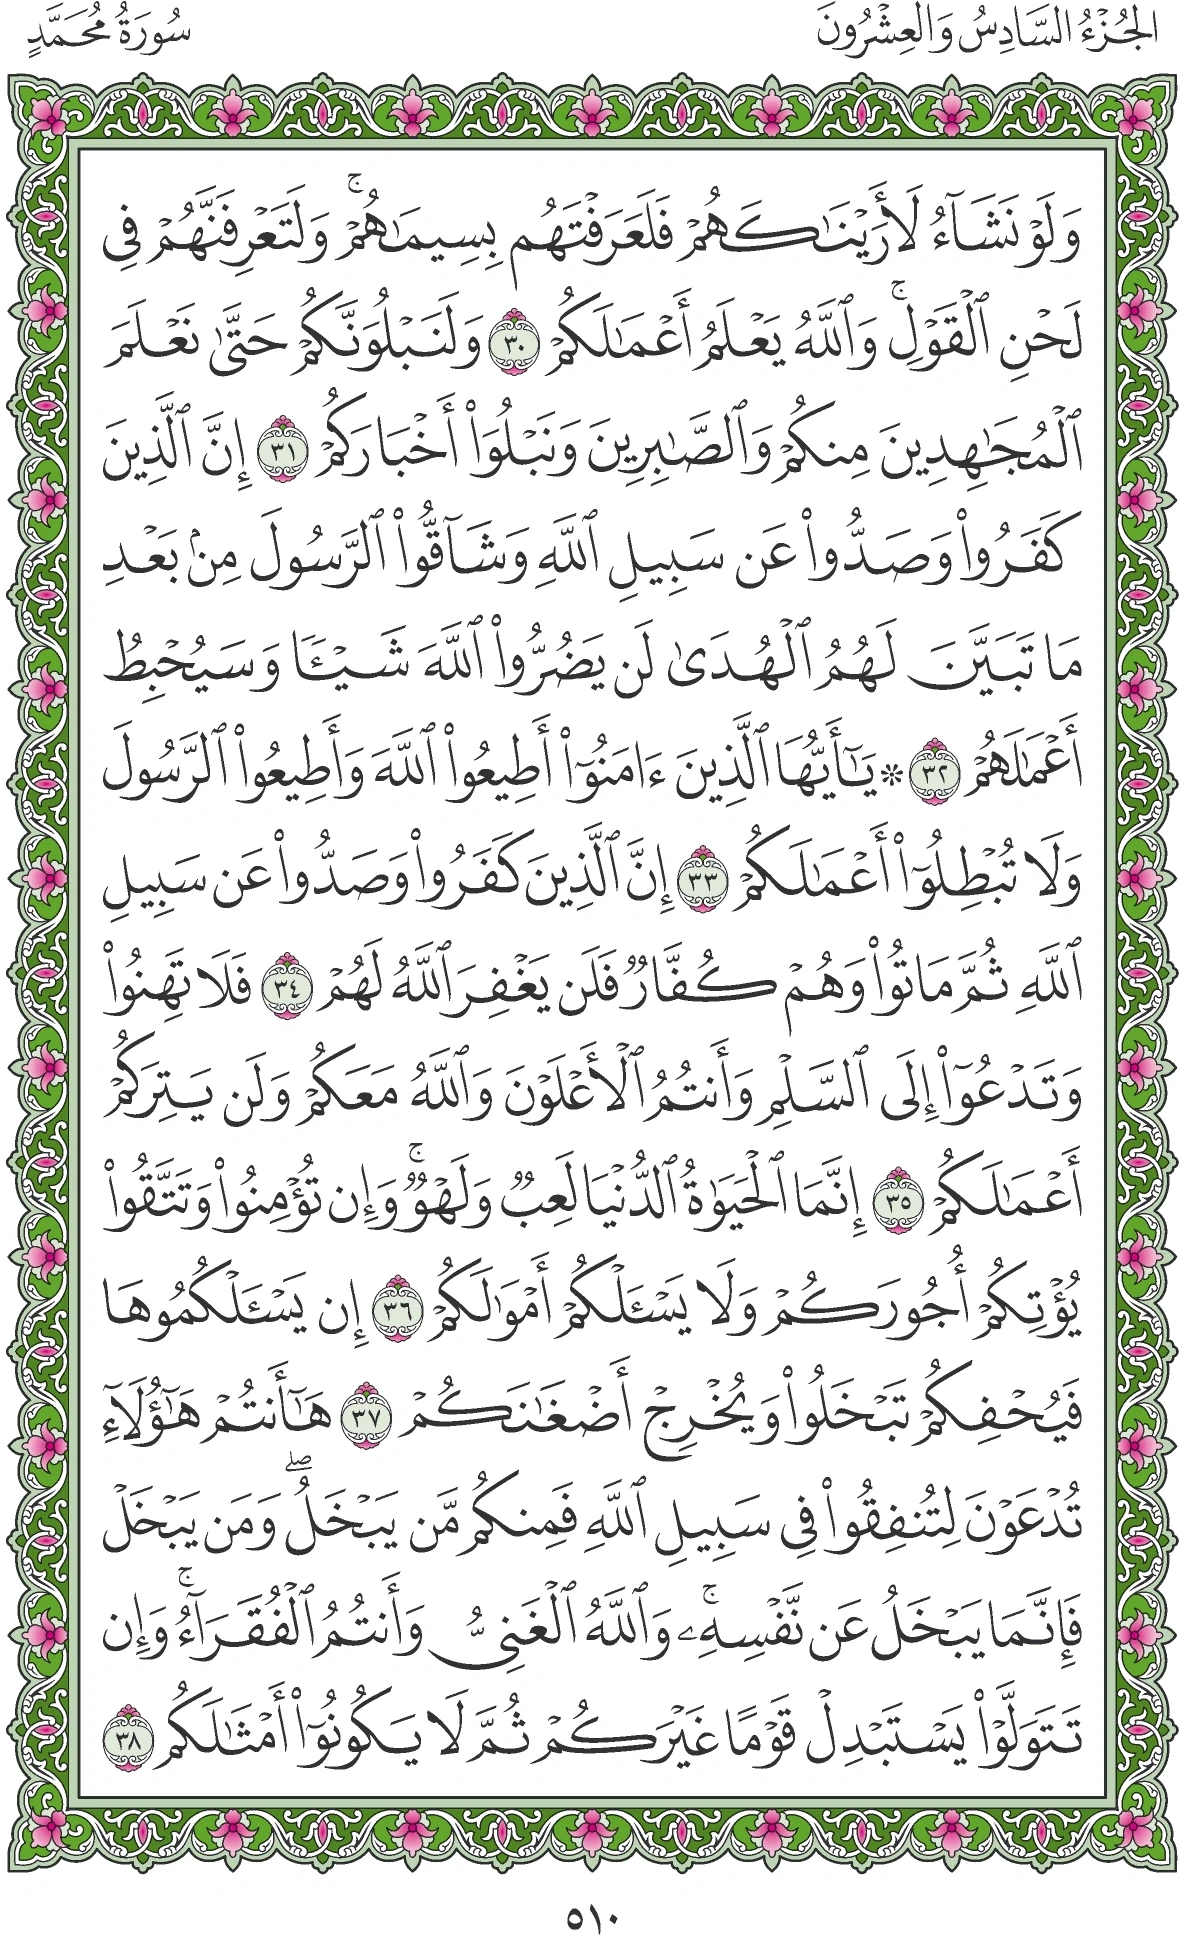 الجُزْءُ السَّادِسُ وَالْعِشْرُونَ
سُورَةُ مُحَمَّدٍ
وَلَوْ نَشَآءُ لَأَرَيْنَٰكَهُمْ فَلَعَرَفْتَهُم بِسِيمَٰهُمْۚ وَلَتَعْرِفَنَّهُمْ فِى
لَحْنِ ٱلْقَوْلِۚ وَٱللَّهُ يَعْلَمُ أَعْمَٰلَكُمْ ٣٠ وَلَنَبْلُوَنَّكُمْ حَتَّىٰ نَعْلَمَ
ٱلْمُجَٰهِدِينَ مِنكُمْ وَٱلصَّٰبِرِينَ وَنَبْلُوَا۟ أَخْبَارَكُمْ ٣١ إِنَّ ٱلَّذِينَ
كَفَرُوا۟ وَصَدُّوا۟ عَن سَبِيلِ ٱللَّهِ وَشَآقُّوا۟ ٱلرَّسُولَ مِنۢ بَعْدِ
مَا تَبَيَّنَ لَهُمُ ٱلْهُدَىٰ لَن يَضُرُّوا۟ ٱللَّهَ شَيْـًٔا وَسَيُحْبِطُ
أَعْمَٰلَهُمْ ٣٢ ۞ يَٰٓأَيُّهَا ٱلَّذِينَ ءَامَنُوٓا۟ أَطِيعُوا۟ ٱللَّهَ وَأَطِيعُوا۟ ٱلرَّسُولَ
وَلَا تُبْطِلُوٓا۟ أَعْمَٰلَكُمْ ٣٣ إِنَّ ٱلَّذِينَ كَفَرُوا۟ وَصَدُّوا۟ عَن سَبِيلِ
ٱللَّهِ ثُمَّ مَاتُوا۟ وَهُمْ كُفَّارٌ فَلَن يَغْفِرَ ٱللَّهُ لَهُمْ ٣٤ فَلَا تَهِنُوا۟
وَتَدْعُوٓا۟ إِلَى ٱلسَّلْمِ وَأَنتُمُ ٱلْأَعْلَوْنَ وَٱللَّهُ مَعَكُمْ وَلَن يَتِرَكُمْ
أَعْمَٰلَكُمْ ٣٥ إِنَّمَا ٱلْحَيَوٰةُ ٱلدُّنْيَا لَعِبٌ وَلَهْوٌۚ وَإِن تُؤْمِنُوا۟ وَتَتَّقُوا۟
يُؤْتِكُمْ أُجُورَكُمْ وَلَا يَسْـَٔلْكُمْ أَمْوَٰلَكُمْ ٣٦ إِن يَسْـَٔلْكُمُوهَا
فَيُحْفِكُمْ تَبْخَلُوا۟ وَيُخْرِجْ أَضْغَٰنَكُمْ ٣٧ هَٰٓأَنتُمْ هَٰٓؤُلَآءِ
تُدْعَوْنَ لِتُنفِقُوا۟ فِى سَبِيلِ ٱللَّهِ فَمِنكُم مَّن يَبْخَلُۖ وَمَن يَبْخَلْ
فَإِنَّمَا يَبْخَلُ عَن نَّفْسِهِۦۚ وَٱللَّهُ ٱلْغَنِىُّ وَأَنتُمُ ٱلْفُقَرَآءُۚ وَإِن
تَتَوَلَّوْا۟ يَسْتَبْدِلْ قَوْمًا غَيْرَكُمْ ثُمَّ لَا يَكُونُوٓا۟ أَمْثَٰلَكُم ٣٨
٥١٠